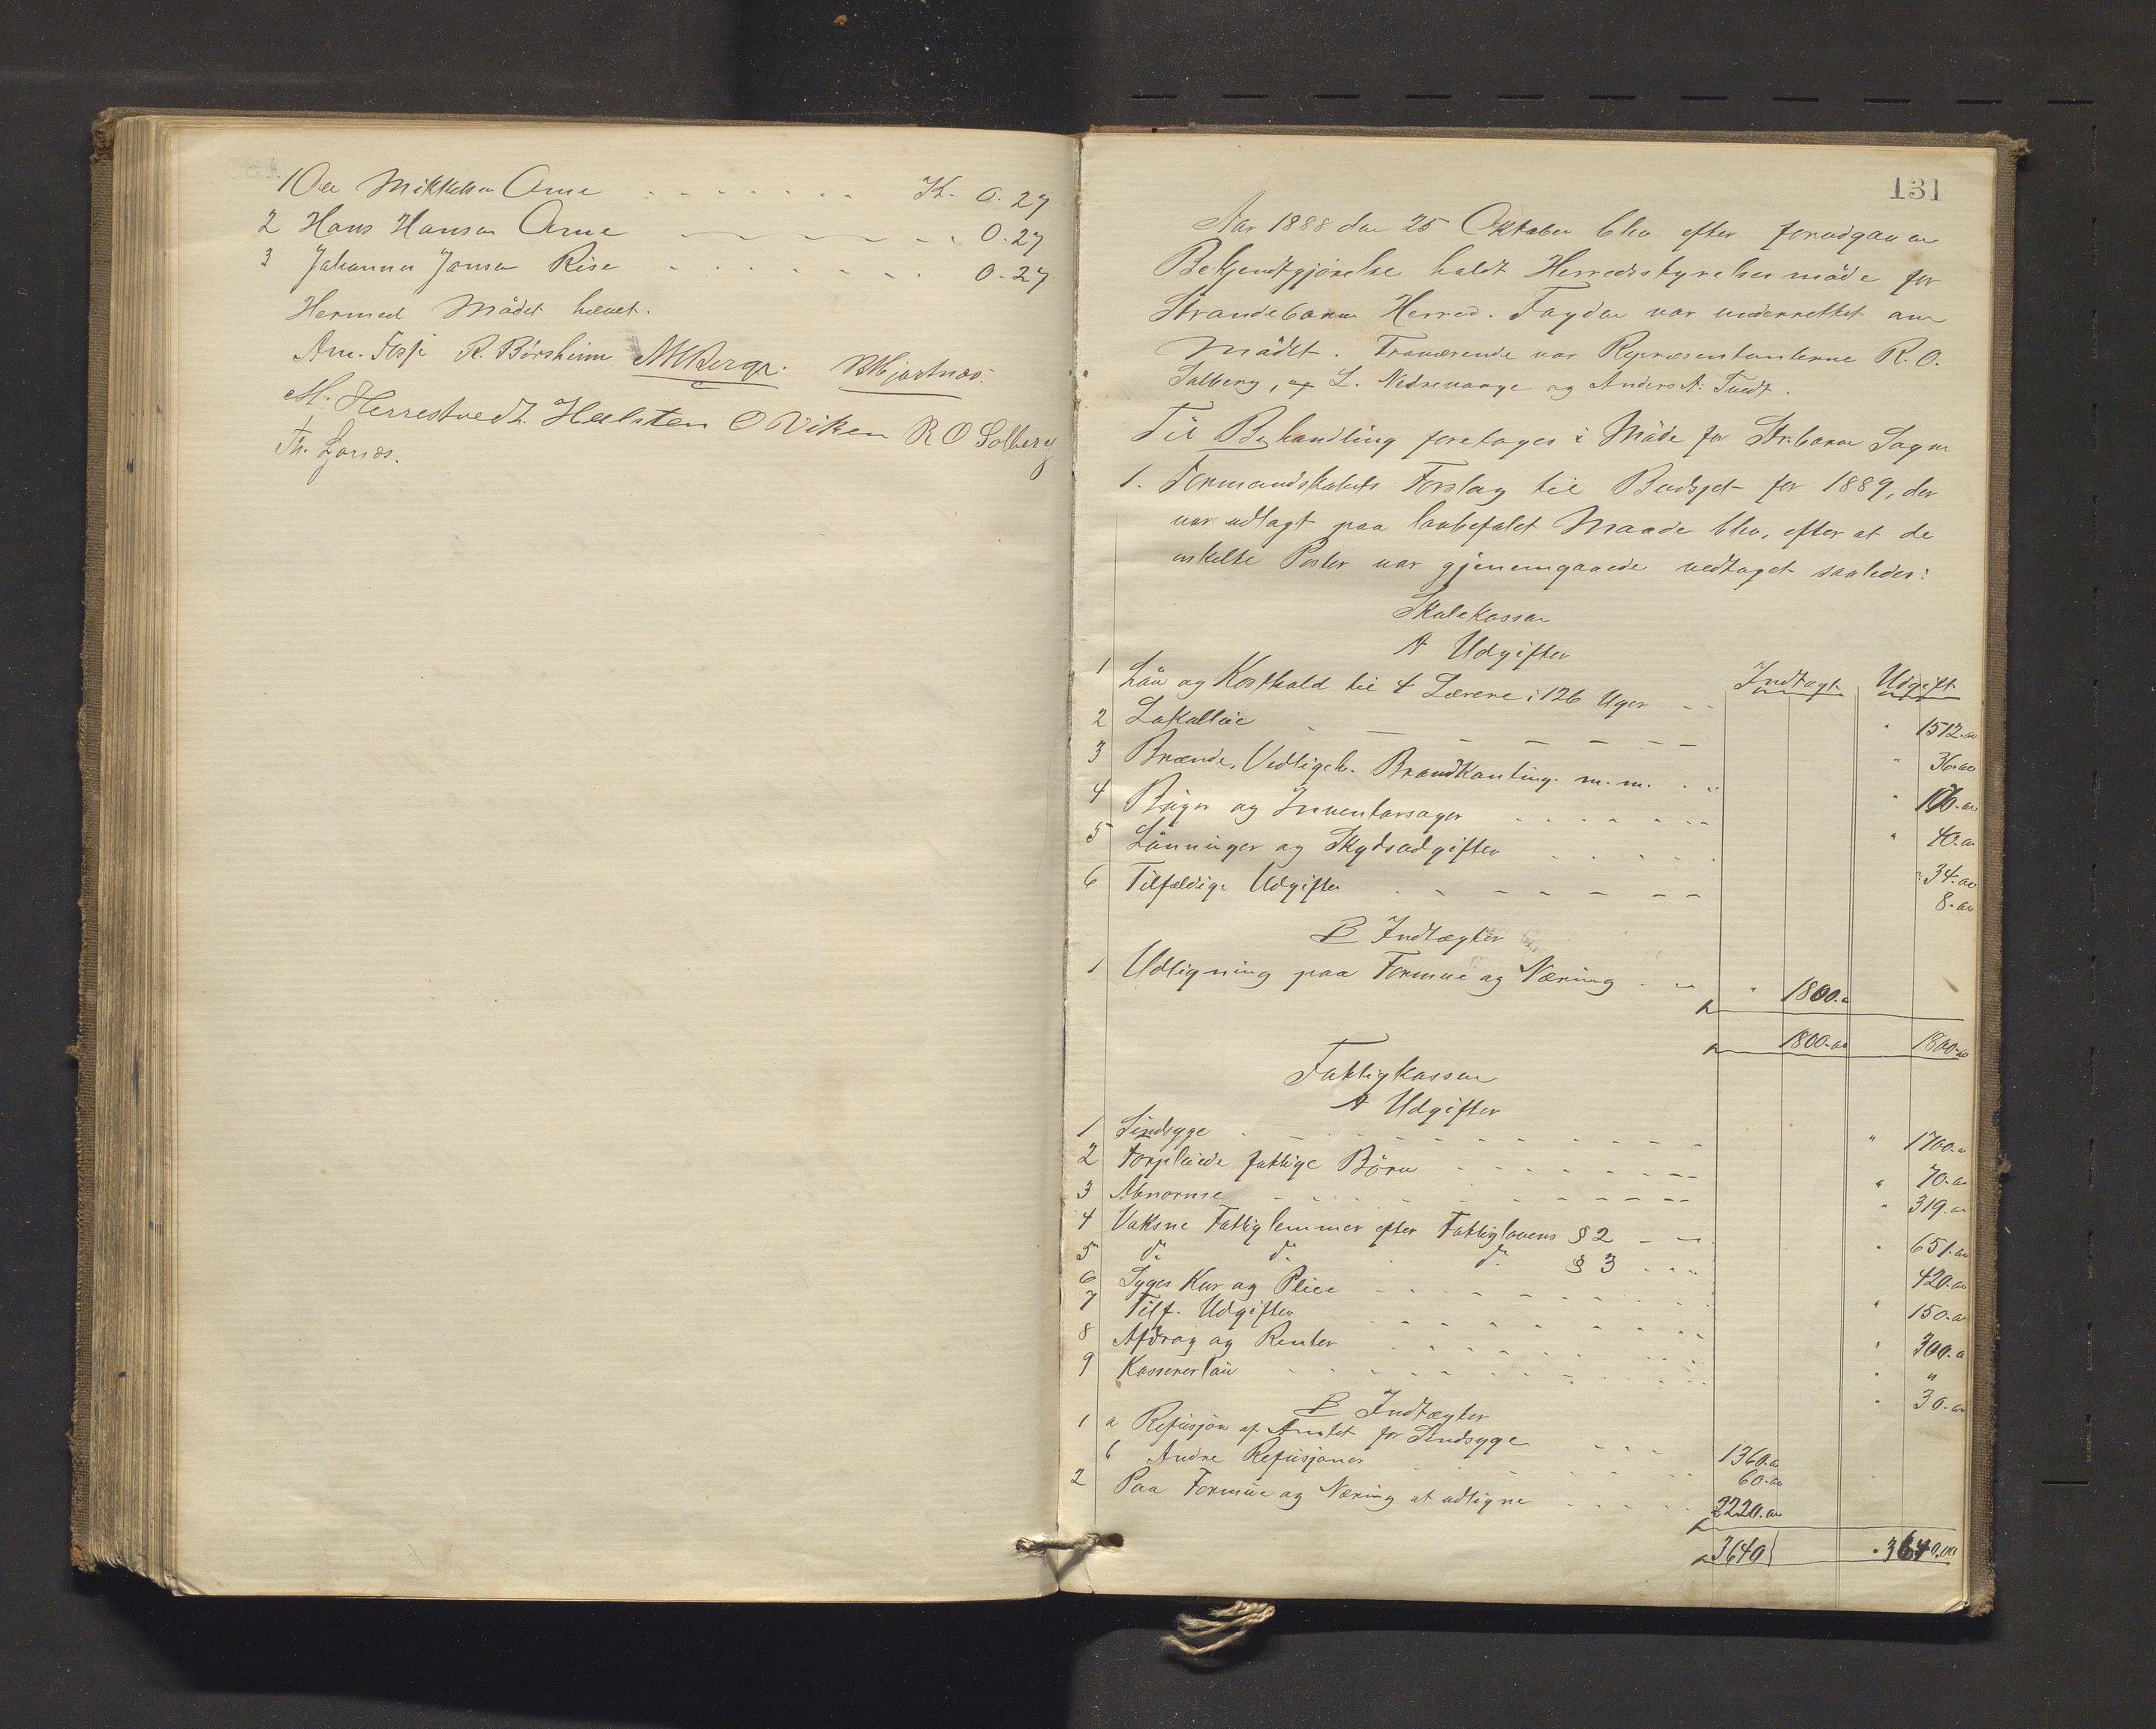 1 Ole Mikkelsen Arne - - - - - - - Kr. 0.27
2 Hans Hansen Arne - - - - - - 0.27
3 Johannes Jansen Rise - - - - - - - 0-27
Hermed Mödet hævet.
Am. Fosse R. Börsheim N H Berge. B Hjortnæs.
M. Herrestvedt. Halsten O Viken R O Solberg
Th. Lones.
131
Aar 1888 den 25 Oktober blev efter forudgaaen
Bekjendtgjörelse holdt Herredsstyrelsesmöde for
Strandebarm Herred. Fogden var underrettet om
Mödet. Fraværende var Repræsentanterne R. O.
Solberg, L. Nedrevaage og Anders A. Tvedt.
Til Behandling foretages i Möde for Str.barm Sogn
1. Formandskabets Forslag til Budget for 1889, der
var udlagt paa lovbefalet Maade blev, efter at de
enkelte Poster var gjenemgaaede vedtaget saaledes:
Skolekassen
A Udgifter
Indtægt Udgift
1 Lön og Kosthold til 4 Lærere i 126 Uger - - " 1512.00
2 Lokalleie - - - - - - - " 36.00
3 Brænde, Vedligeh. Brandkonting. m.m. - - " 170.00
4 Böger og Inventarsager - - - - - - " 40.00
5 Lönninger og Skydsudgifter - - - - - " 34.00
6 Tilfældige Udgifter - - - - - - - 8.00
B Indtægter
1 Udligning paa Formue og Næring - - " 1800.00
1800.00 1800.00
Fattigkassen
A Udgifter
1 Sindsyge - - - - - - - - - - " 1700.00
2 Forpleiede fattige Börn - - - - - - - " 70.00
3 Abnorme - - - - - - - - - - " 319.00
4 Voksne Fattiglemmer efter Fattiglovens § 2 - - " 651.00
5 do do do § 3 - - - 420.00
6 Syges Kur og Pleie - - - - - - - - " 150.00
7 Tilf. Udgifter - - - - - - - - " 300.00
8 Afdrag og Renter - - - - - - - " "
9 Kassererlön - - - - - - - - - " 30.00
B Indtægter
1 a Refusjon af Amtet for Sindsyge - - - 1360.00
b Andre Refusjoner - - - - - - - 60.00
2 Paa Formue og Næring at udligne - - - - 2220.00
3640 " 3640.00